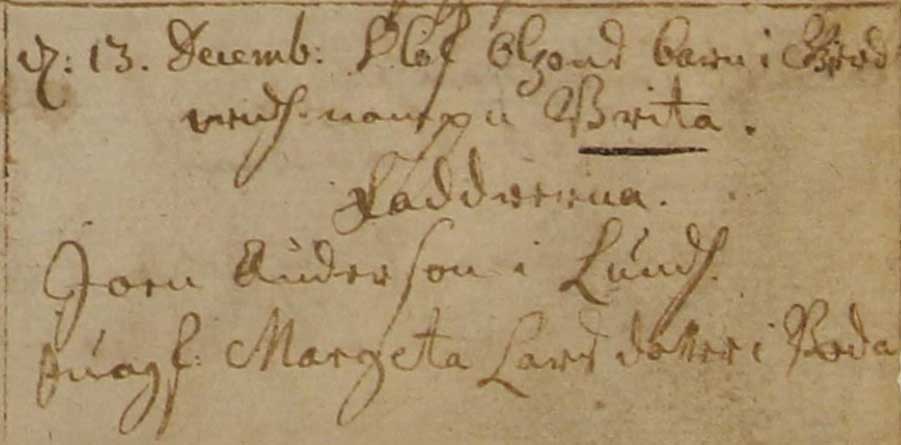 d: 13. Decemb: Olof Olsons barn i
medh nampn Brita.
Faddrerna.
Joen Anderson i Lundh.
Piugf: Margeta Lars dotter i Röda